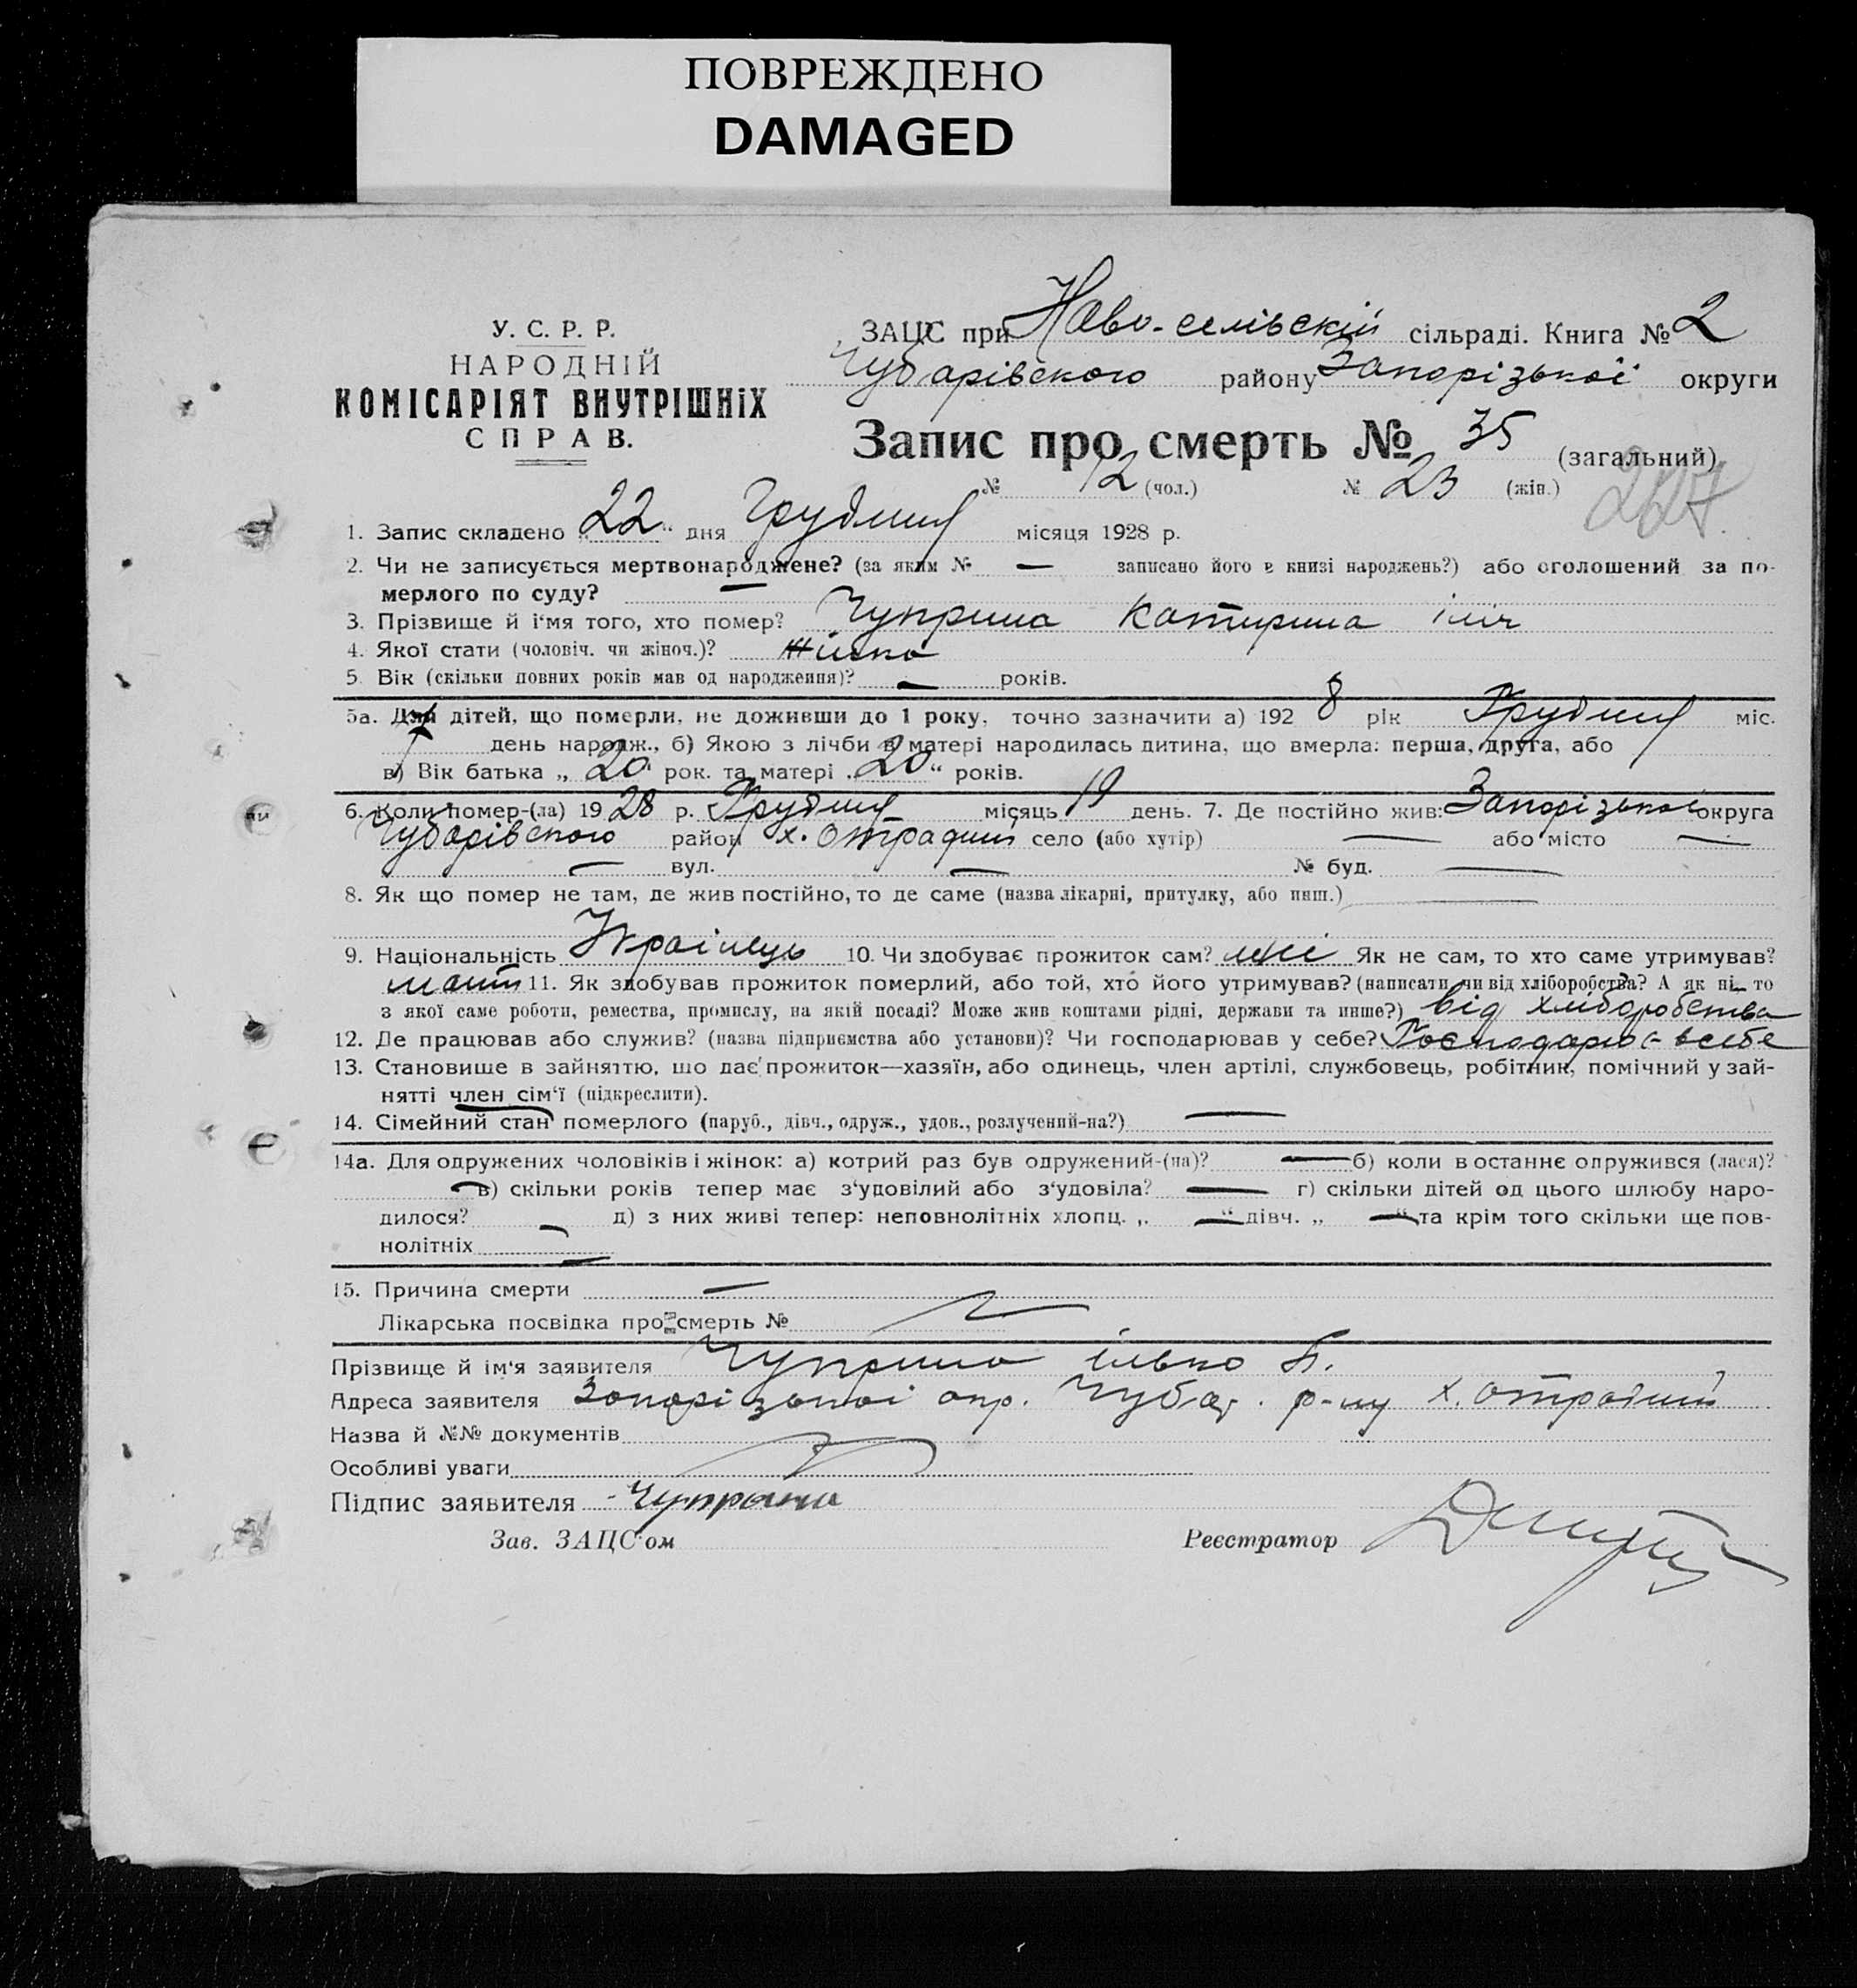 ПОВРЕЖДЕНО
DAMAGED
У. С. Р. Р.
НАРОДНІЙ
КОМІСАРІЯТ ВНУТРІШНІХ
СПРАВ.
ЗАЦС при Ново-селівскій сільраді. Книга № 2
Чубарівского району Запорізькоі округи
Запис про смерть № 35 (загальний)
№ 12 (чол.) № 23 (жін.)
227
1. Запис складено „22" дня Грудня місяця 1928 р.
2. Чи не записується мертвонароджене? (за яким № — записано його в книзі народжень?) або оголошений за по-
мерлого по суду? —
3. Прізвище й і'мя того, хто помер? Чуприна Катирина іліч
4. Якої стати (чоловіч. чи жіноч.)? Жінка
5. Вік (скільки повних років мав од народження)? — років.
5а. Для дітей, що померли, не доживши до 1 року, точно зазначити а) 1928 рік Грудня міс.
день народж., б) Якою з лічби в матері народилась дитина, що вмерла: перша, друга, або
в) Вік батька „20" рок. та матері „20" років.
6. Коли помер-(ла) 1928 р. Грудня місяць 19 день. 7. Де постійно жив: Запорізькоі округа
Чубарівского район х. Отрадний село (або хутір) — або місто —
— вул. — № буд. —
8. Як що помер не там, де жив постійно, то де саме (назва лікарні, притулку, або инш.) —
9. Національність Українець 10. Чи здобуває прожиток сам? ні Як не сам, то хто саме утримував?
мати 11. Як здобував прожиток померлий, або той, хто його утримував? (написати, чи від хліборобства? А як ні, то
з якої саме роботи, ремества, промислу, на якій посаді? Може жив коштами рідні, держави та инше?) від хліборобства
12. Де працював або служив? (назва підприємства або установи)? Чи господарював у себе? Господарю- в себе
13. Становище в зайняттю, що дає прожиток—хазяїн, або одинець, член артілі, службовець, робітник, помічний у зай-
нятті член сім'ї (підкреслити).
14. Сімейний стан померлого (паруб., дівч., одруж., удов., розлучений-на?) —
14а. Для одружених чоловіків і жінок: а) котрий раз був одружений-(на)? — б) коли в останнє одружився (лася)?
— в) скільки років тепер має з'удовілий або з'удовіла? — г) скільки дітей од цього шлюбу наро-
дилося? — д) з них живі тепер: неповнолітніх хлопц. „ — " дівч. „ — " та крім того скільки ще пов-
нолітніх —
15. Причина смерти —
Лікарська посвідка про смерть №
Прізвище й ім'я заявителя Чуприна ілько П.
Адреса заявителя Запорізькоі окр. Чубар. р-ну х. Отрадний
Назва й №№ документів
Особливі уваги
Підпис заявителя Чуприна
Зав. ЗАЦС'ом Реєстратор